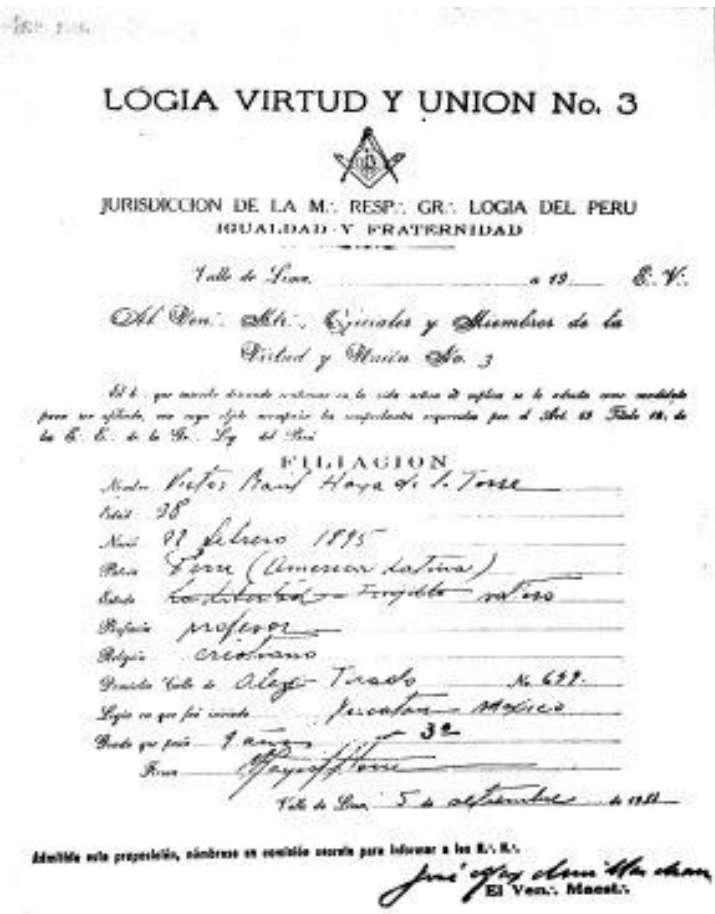 LOGIA VIRTUD Y UNION No. 3
G
JURISDICCION DE LA M∴ RESP∴ GR∴ LOGIA DEL PERU
IGUALDAD Y FRATERNIDAD
Valle de Lima, a 19 E∴ V∴
Al Ven∴ Mtr∴, Oficiales y Miembros de la
Virtud y Unión No. 3
El h∴ que suscribe deseando continuar en la vida activa os suplica se le admita como candidato
para ser afiliado, con cuyo objeto acompaña los comprobantes requeridos por el Art. Título de
la Gr∴ Log∴ del Perú
FILIACION
Nombre Victor Raul Haya de la Torre
Edad 38
Nació 22 febrero 1895
Patria Peru (America Latina)
Estado La Libertad - Trujillo soltero
Profesión profesor
Religión cristiano
Domicilio Calle de Tirado No. 699
Logia en que fué iniciado Yucatan Mexico
Grado que posée 9 años 32
Firma
Valle de Lima, 5 de setiembre de
Admitida esta proposición, nómbrase en comisión secreta para informar a los H∴ H∴
El Ven∴ Maest∴